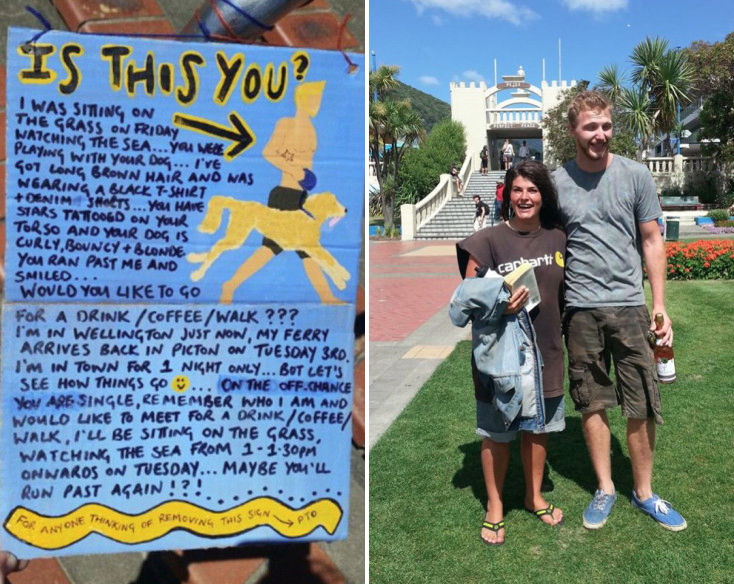 IS THIS YOU?
I WAS SITTING ON
THE GRASS ON FRIDAY
WATCHING THE SEA... YOU WERE
PLAYING WITH YOUR DOG... I'VE
GOT LONG BROWN HAIR AND WAS
WEARING A BLACK T-SHIRT
+ DENIM SHORTS... YOU HAVE
STARS TATTOOED ON YOUR
TORSO AND YOUR DOG IS
CURLY, BOUNCY + BLONDE
YOU RAN PAST ME AND
SMILED...
WOULD YOU LIKE TO GO
FOR A DRINK/COFFEE/WALK???
I'M IN WELLINGTON JUST NOW, MY FERRY
ARRIVES BACK IN PICTON ON TUESDAY 3RD.
I'M IN TOWN FOR 1 NIGHT ONLY... BUT LET'S
SEE HOW THINGS GO ... ON THE OFF.CHANCE
YOU ARE SINGLE, REMEMBER WHO I AM AND
WOULD LIKE TO MEET FOR A DRINK/COFFEE/
WALK, I'LL BE SITTING ON THE GRASS,
WATCHING THE SEA FROM 1-1:30PM
ONWARDS ON TUESDAY... MAYBE YOU'LL
RUN PAST AGAIN!?!
FOR ANYONE THINKING OF REMOVING THIS SIGN → PTO
PEACE
PERFECT PEACE
carhartt